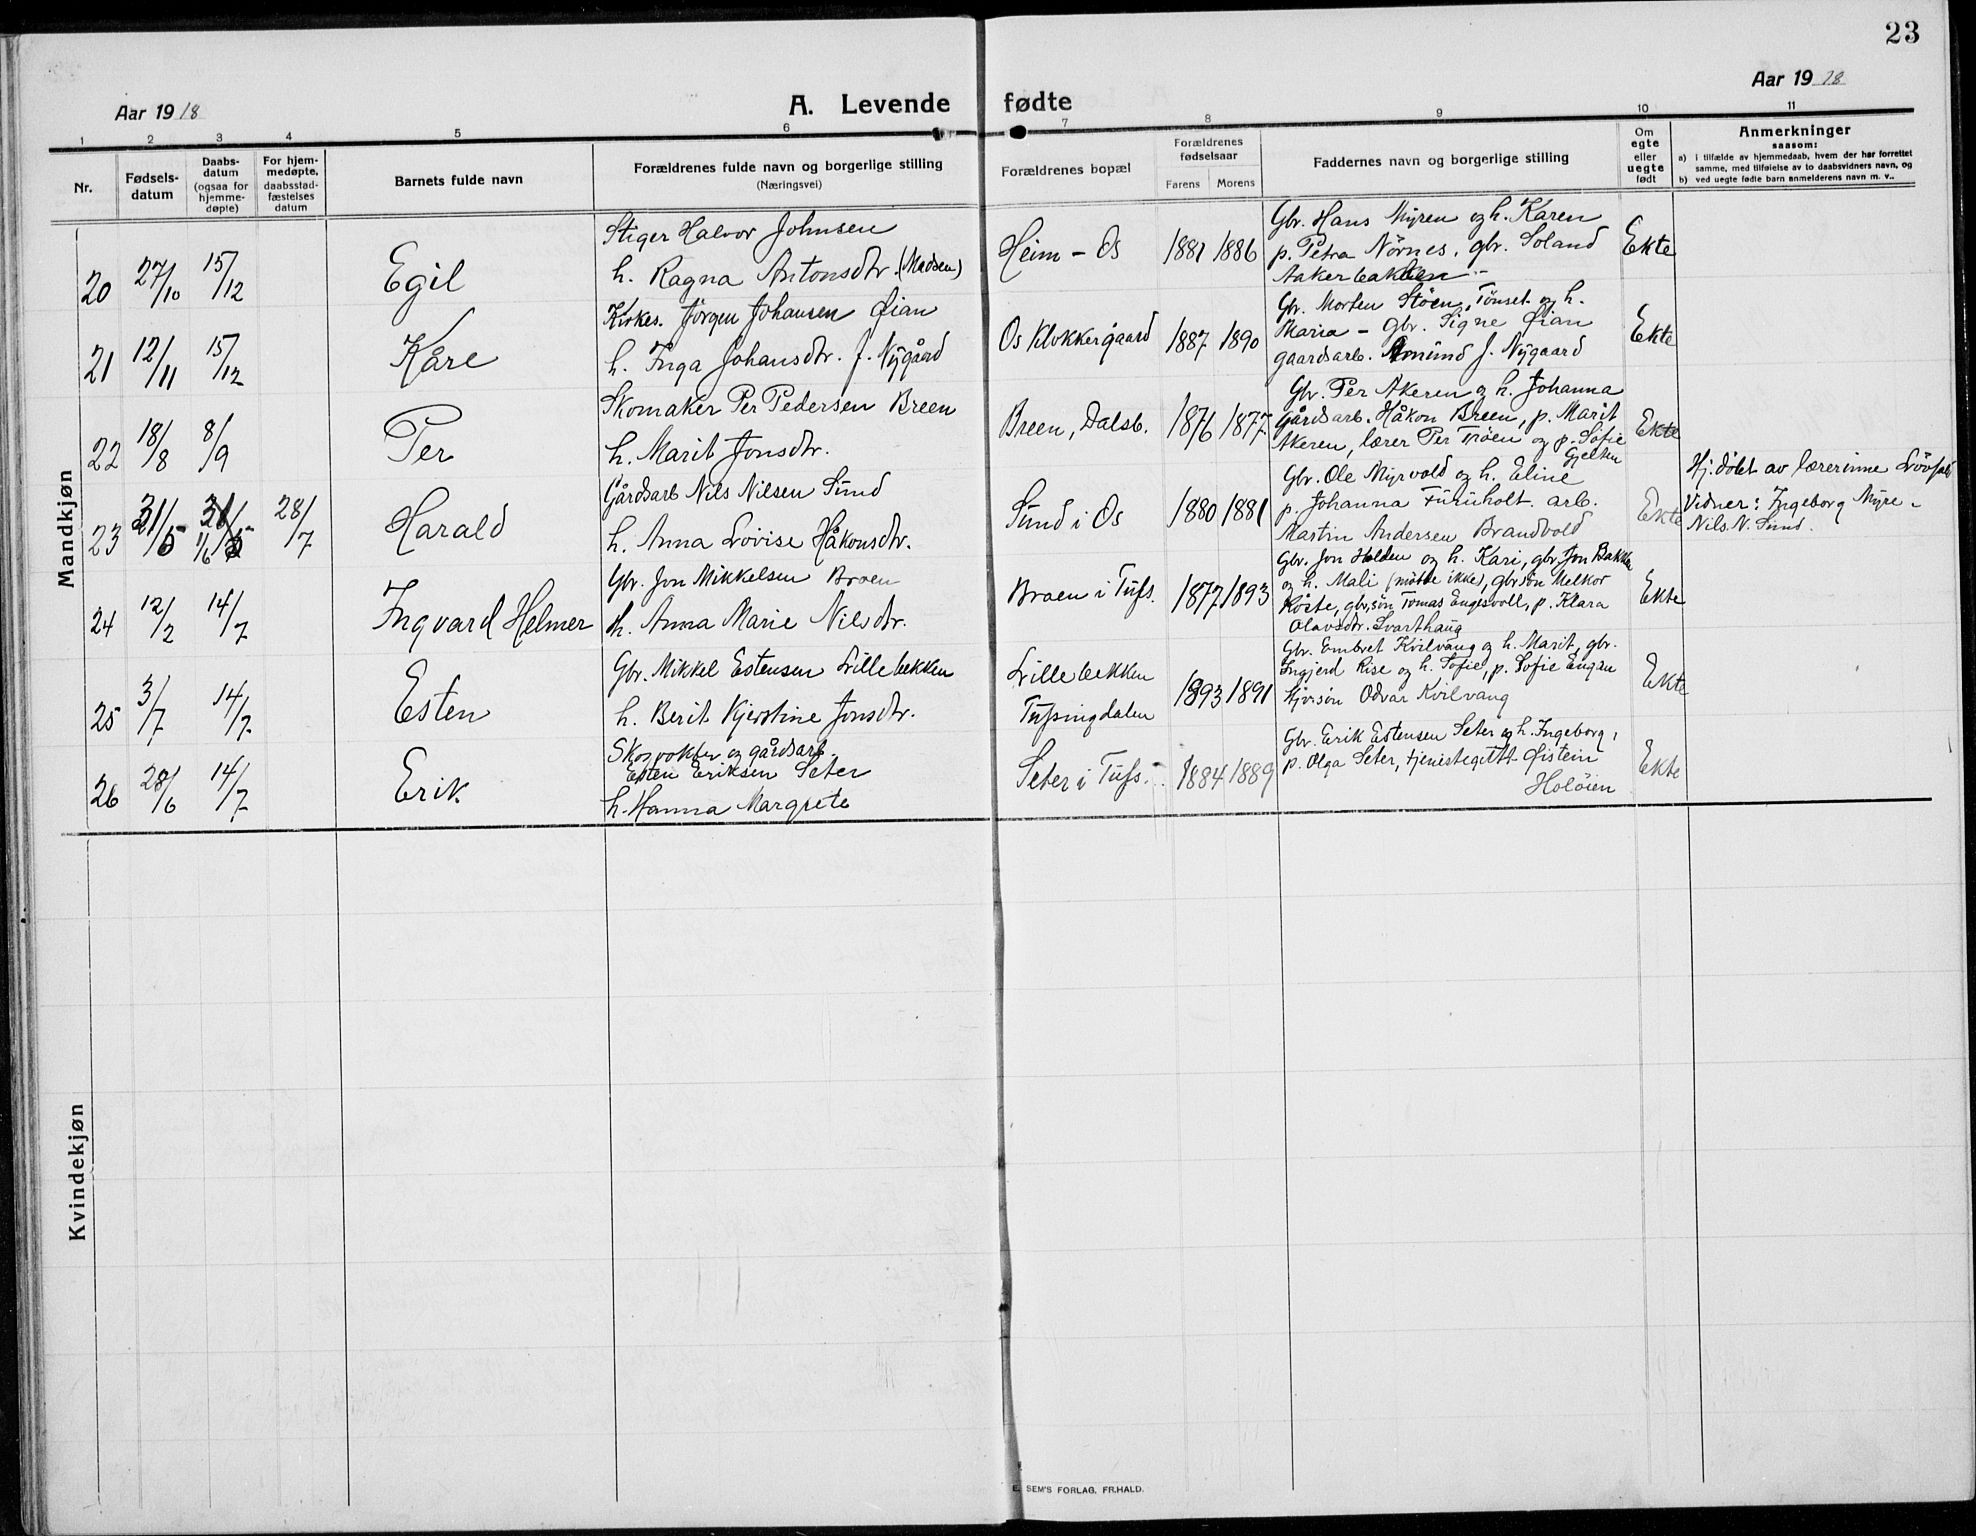 23
Aar 1918
A. Levende fødte
Aar 1918
1 2 3 4 5 6 7 8 9 10 11
Nr.
Fødsels-
datum
Daabs-
datum
(ogsaa for
hjemme-
døpte)
For hjem-
medøpte,
daabsstad-
fæstelses
datum
Barnets fulde navn
Forældrenes fulde navn og borgerlige stilling
(Næringsvei)
Forældrenes bopæl
Forældrenes
fødselsaar
Farens Morens
Faddernes navn og borgerlige stilling
Om
egte
eller
uegte
født
Anmerkninger
saasom:
a) i tilfælde av hjemmedaab, hvem der har forrettet
samme, med tilføielse av to daabsvidners navn, og
b) ved uegte fødte barn anmelderens navn m. v..
Mandkjøn
20 27/10 15/12 Egil
Stiger Halvor Johnsen
h. Ragna Antonsdtr. (Madsen)
Heim - Os 1881 1886
Gbr. Hans Myren og h. Karen
p. Petra Nörnes, gbr. Soland
Aakerbakken -
Ekte
21 12/11 15/12 Kåre
Kirkes. Jörgen Johansen Øian
h. Inga Johansdtr. f. Nygård
Os Klokkergaard 1887 1890
Gbr. Morten Stöen, Tönset og h.
Maria - Gbr. Signe Øian
gaardsarb. Amund J. Nygaard
Ekte
22 18/8 8/9 Per
Skomaker Per Pedersen Breen
h. Marit Jonsdtr.
Breen, Dalsb. 1876 1877
Gbr. Per Akeren og h. Johanna
Gårdsarb. Håkon Breen, p. Marit
Akeren, lærer Per Tröen og p. Sofie
Gjelten
Ekte
23 31/5 31/5 11/6 28/7 Harald
Gårdsarb Nils Nilsen Sund
h. Anna Lovise Håkonsdtr.
Sund i Os 1880 1881
Gbr. Ole Myrvold og h. Eline
p. Johanna Furuholt. arb.
Martin Andersen Brandvold
Ekte
Hj. döbt av lærerinne
Vidner: Ingeborg Myre -
Nils N. Sund.
24 12/2 14/7 Ingvard Helmer
Gbr. Jon Mikkelsen Broen
h. Anna Marie Nilsdtr.
Broen i Tufs. 1877 1893
Gbr. Jon Holden og h. Kari, gbr. Jon Bakken
og h. Mali (mötte ikke), gbrsön Melkor
Röste, gbr,sön Tomas Engesvoll, p. Klara
Olavsdtr. Svarthaug
Ekte
25 3/7 14/7 Esten
Gbr. Mikkel Estensen Lillebekken
h. Berit Kjerstine Jonsdtr.
Lillebekken
Tufsingdalen
1893 1891
Gbr. Embret Kvilvang og h. Marit, gbr.
Ingjerd Rise og h. Sofie, p. Sofie Engan
Odvar Kvilvang
Ekte
26 28/6 14/7 Erik
Skogvokter og gårdsarb.
Esten Eriksen Seter
h. Hanna Margrete
Seter i Tufs. 1884 1889
Gbr. Erik Estensen Seter og h. Ingeborg,
p. Olga Seter, tjenestegutt Øistein
Holöien
Ekte
Kvindekjøn
E. SEM'S FORLAG. FR.HALD.